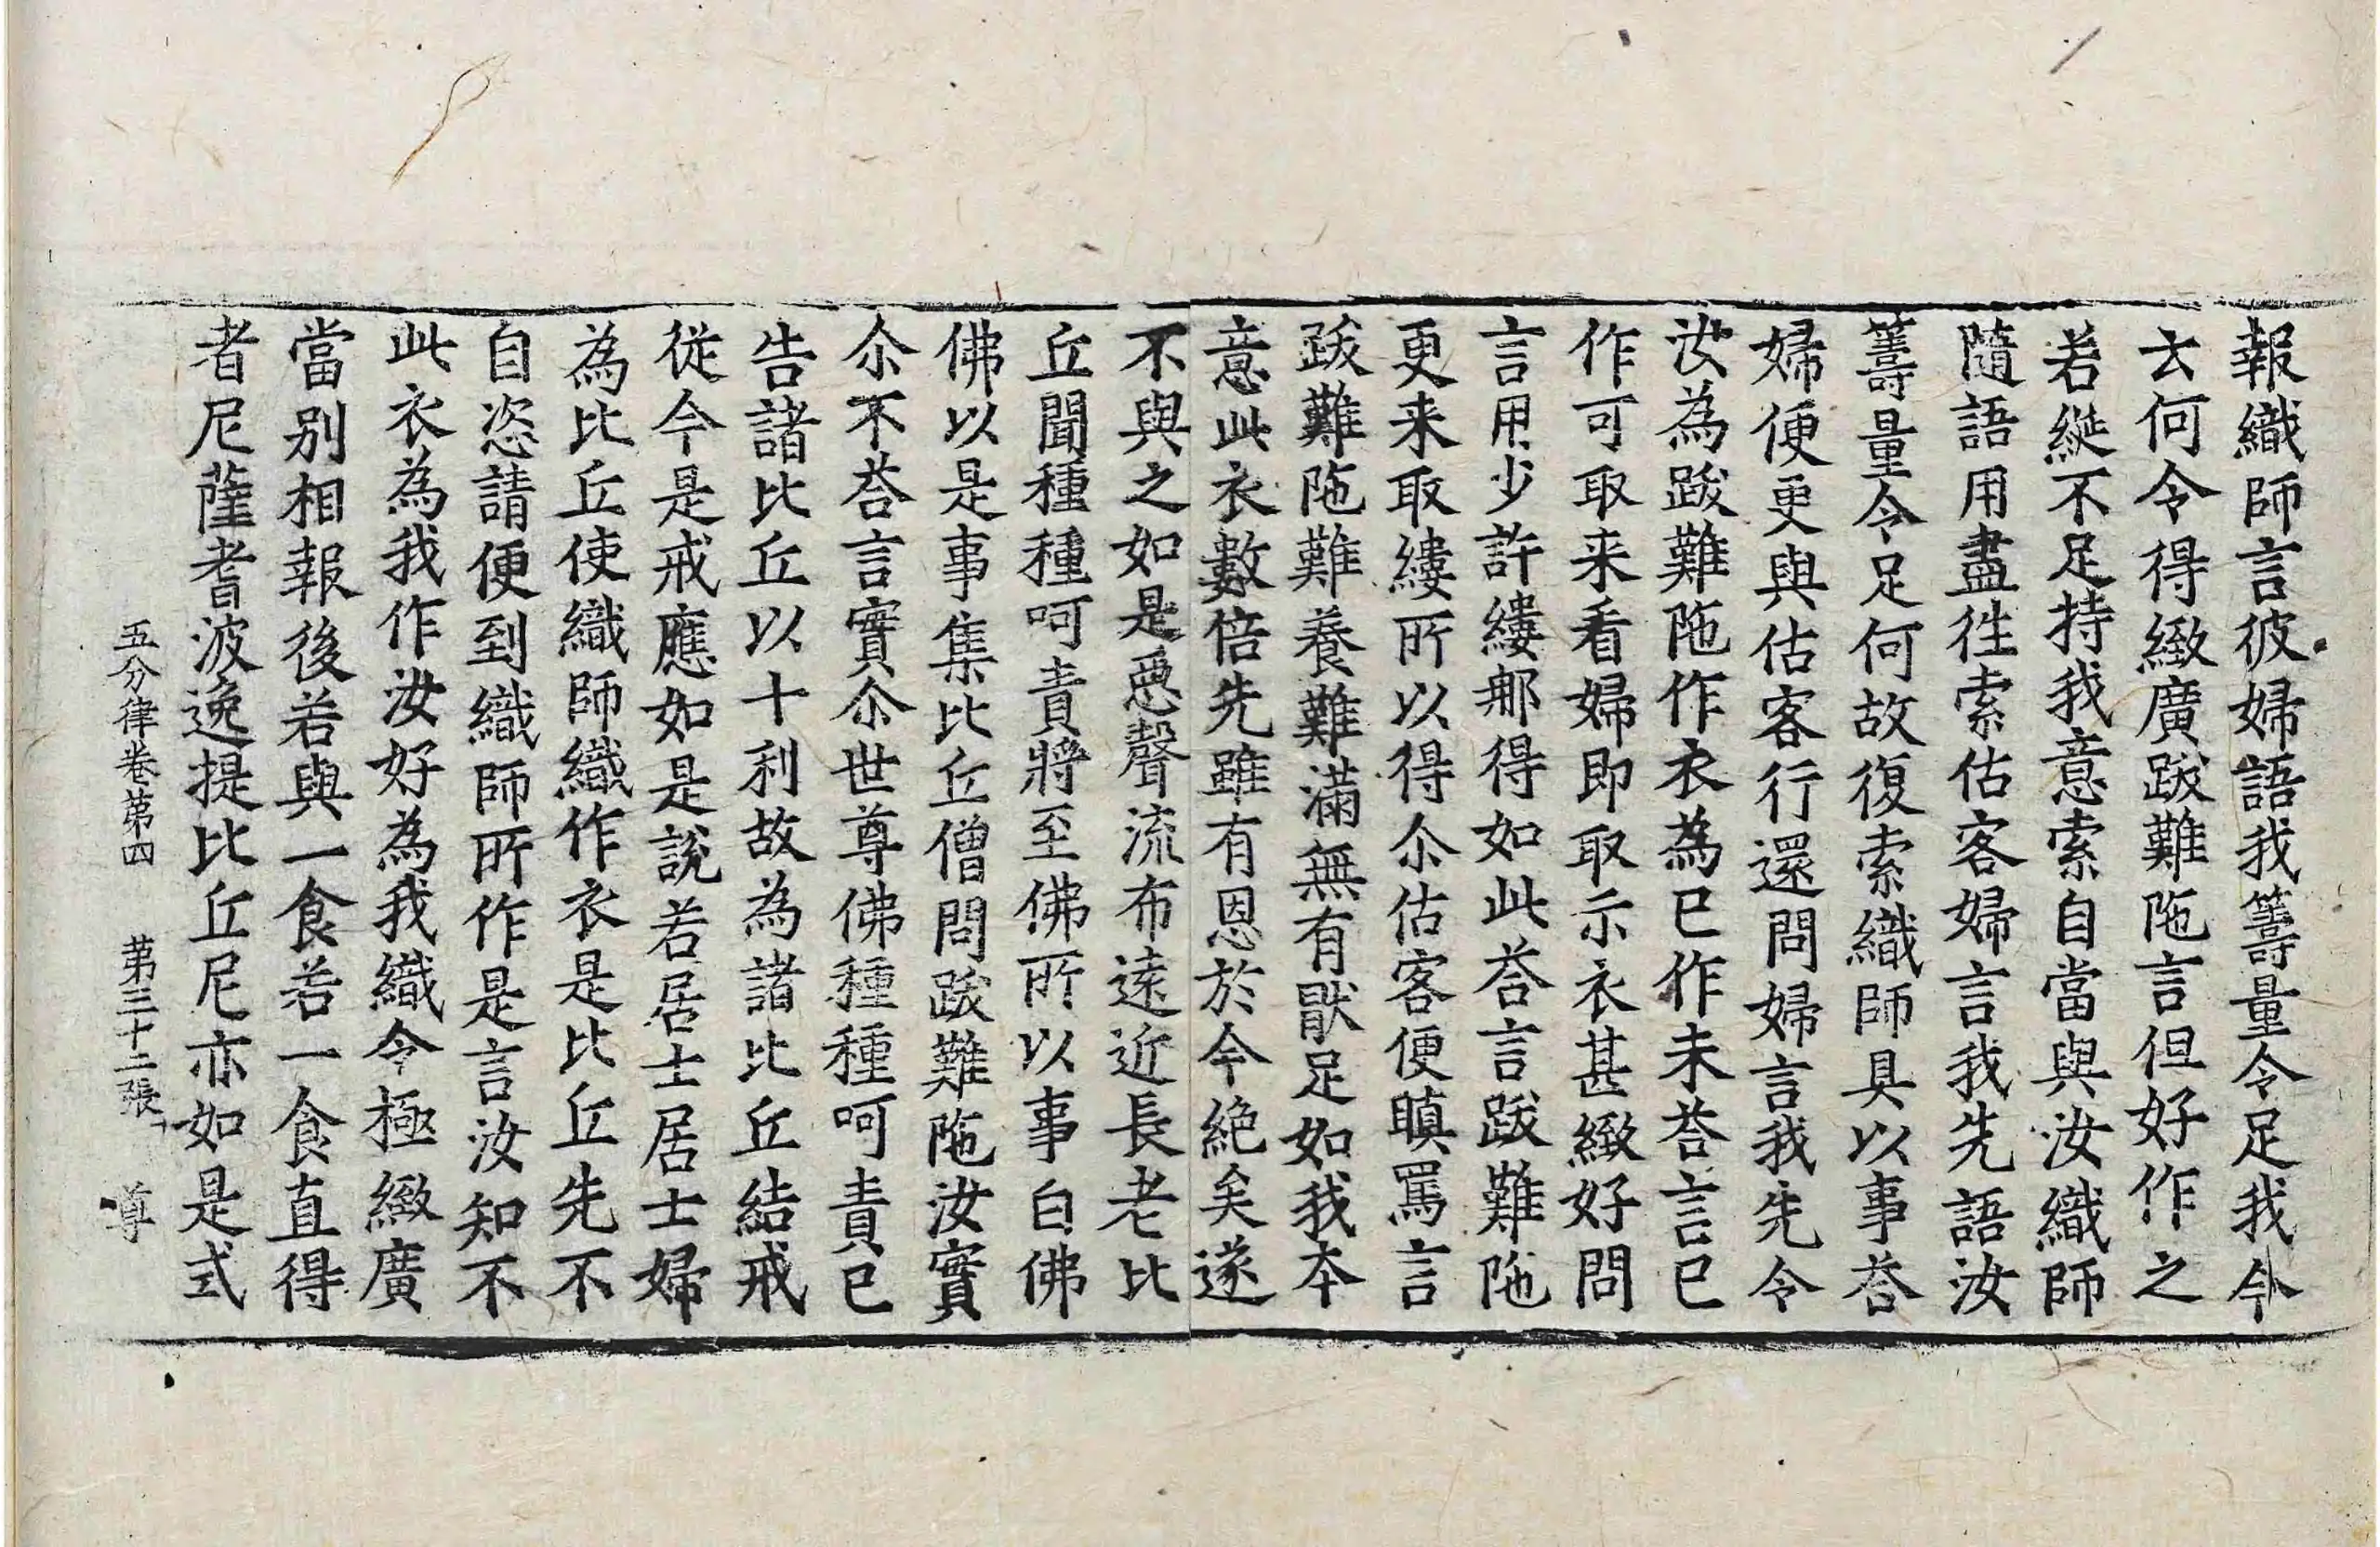 報織師言彼婦語我籌量令足我今
云何令得緻廣跋難陁言但好作之
若綖不足持我意索自當與汝織師
隨語用盡徃索估客婦言我先語汝
籌量令足何故復索織師具以事荅
婦便更與估客行還問婦言我先令
汝為跋難陁作衣為已作未荅言已
作可取来看婦即取示衣甚緻好問
言用少許縷那得如此荅言跋難陁
更来取縷所以得尒估客便瞋罵言
跋難陁難養難滿無有猒足如我本
意此衣數倍先雖有恩於今絶矣遂
不與之如是惡聲流布遠近長老比
丘聞種種呵責將至佛所以事白佛
佛以是事集比丘僧問跋難陁汝實
尒不荅言實尒世尊佛種種呵責已
告諸比丘以十利故為諸比丘結戒
從今是戒應如是說若居士居士婦
為比丘使織師織作衣是比丘先不
自恣請便到織師所作是言汝知不
此衣為我作汝好為我織令極緻廣
當別相報後若與一食若一食直得
者尼薩耆波逸提比丘尼亦如是式
五分律卷第四 第三十二張 尊